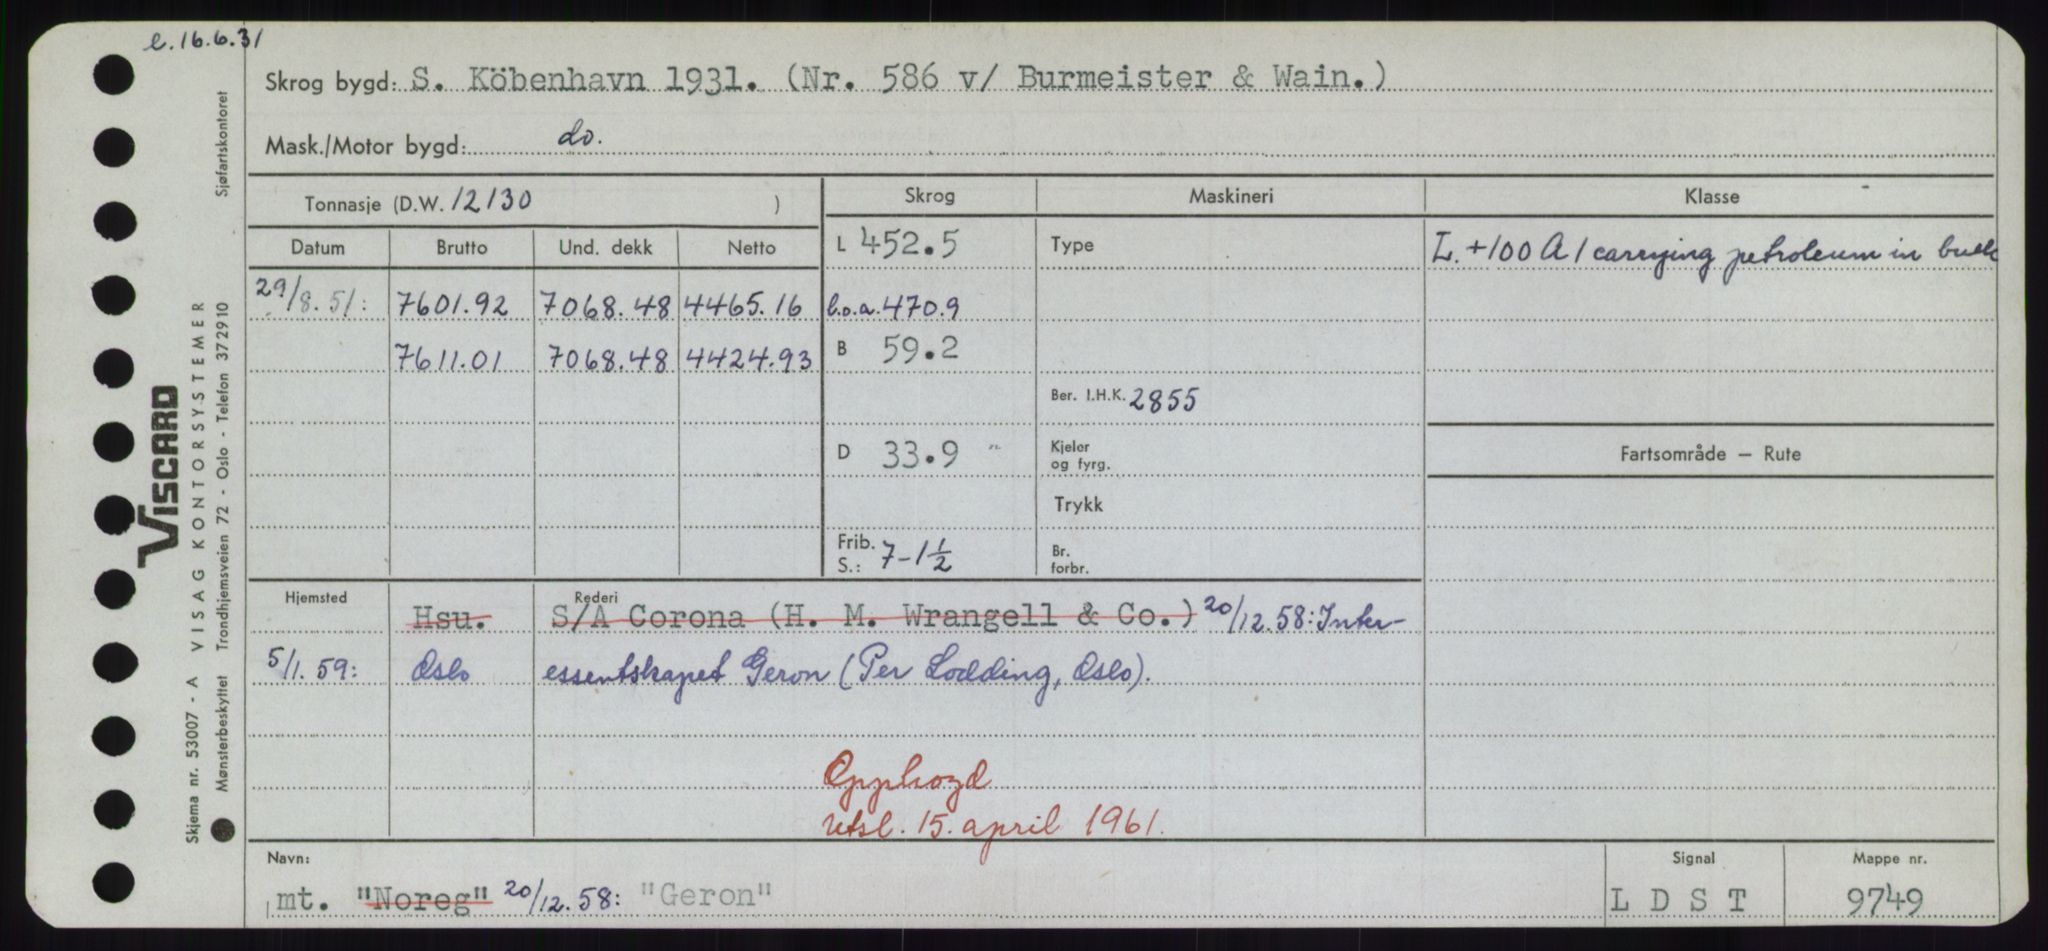 e. 16.6.31
Skrog bygd: S. Köbenhavn 1931. (Nr. 586 v/ Burmeister & Wain.)
Mask./Motor bygd: do.
Tonnasje (D.W. 12130 )
Skrog Maskineri Klasse
Datum Brutto Und. dekk Netto
L 452.5 Type L. +100 A 1 carrying petroleum in bulk
29/8.51: 7601.92 7068.48 4465.16 l.o.a. 470.9
7611.01 7068.48 4424.93 B 59.2
Ber. I.H.K. 2855
D 33.9 Kjeler og fyrg. Fartsområde – Rute
Trykk
Frib. S.: 7-1½ Br. forbr.
Hjemsted Rederi
Hsu. S/A Corona (H. M. Wrangell & Co.) 20/12.58: Inter-
5/1.59: Oslo essentskapet Geron (Per Lodding, Oslo).
Opphozd
Utsl. 15. april 1961.
Navn: Signal Mappe nr.
mt. "Noreg" 20/12.58: "Geron" L D S T 9749
VISCARD
Skjema nr. 53007 - A VISAG KONTORSYSTEMER
Mønsterbeskyttet Trondhjemsveien 72 - Oslo - Telefon 372910 Sjøfartskontoret